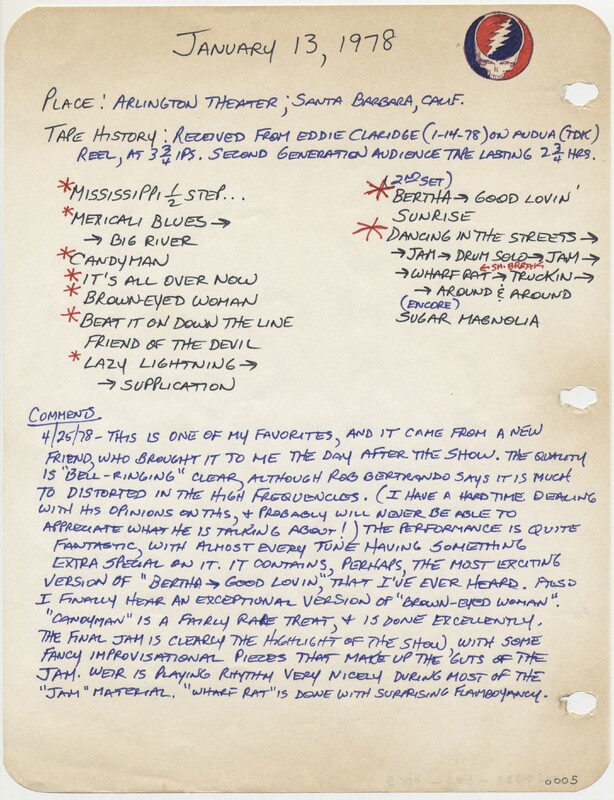 JANUARY 13, 1978
PLACE: ARLINGTON THEATER; SANTA BARBARA, CALIF.
TAPE HISTORY: RECEIVED FROM EDDIE CLARIDGE (1-14-78) ON AUDUA (TDK)
REEL, AT 3 3/4 IPS. SECOND GENERATION AUDIENCE TAPE LASTING 2 3/4 HRS.
*MISSISSIPPI 1/2 STEP...
*MEXICALI BLUES →
→ BIG RIVER
*CANDYMAN
*IT'S ALL OVER NOW
*BROWN-EYED WOMAN
*BEAT IT ON DOWN THE LINE
FRIEND OF THE DEVIL
*LAZY LIGHTNING →
→ SUPPLICATION
(2ND SET)
*BERTHA → GOOD LOVIN'
SUNRISE
*DANCING IN THE STREETS →
→ JAM → DRUM SOLO → JAM →
→ WHARF RAT → TRUCKIN →
→ AROUND & AROUND
(ENCORE)
SUGAR MAGNOLIA
COMMENTS
4/25/78 - THIS IS ONE OF MY FAVORITES, AND IT CAME FROM A NEW
FRIEND, WHO BROUGHT IT TO ME THE DAY AFTER THE SHOW. THE QUALITY
IS "BELL-RINGING" CLEAR, ALTHOUGH ROB BERTRANDO SAYS IT IS MUCH
TO DISTORTED IN THE HIGH FREQUENCIES. (I HAVE A HARD TIME DEALING
WITH HIS OPINIONS ON THIS, & PROBABLY WILL NEVER BE ABLE TO
APPRECIATE WHAT HE IS TALKING ABOUT!) THE PERFORMANCE IS QUITE
FANTASTIC, WITH ALMOST EVERY TUNE HAVING SOMETHING
EXTRA SPECIAL ON IT. IT CONTAINS, PERHAPS, THE MOST EXCITING
VERSION OF "BERTHA → GOOD LOVIN," THAT I'VE EVER HEARD. ALSO
I FINALLY HEAR AN EXCEPTIONAL VERSION OF "BROWN-EYED WOMAN".
"CANDYMAN" IS A FAIRLY RARE TREAT, & IS DONE EXCELLENTLY.
THE FINAL JAM IS CLEARLY THE HIGHLIGHT OF THE SHOW, WITH SOME
FANCY IMPROVISATIONAL PIECES THAT MAKE UP THE 'GUTS OF THE
JAM. WEIR IS PLAYING RHYTHM VERY NICELY DURING MOST OF THE
"JAM" MATERIAL. "WHARF RAT" IS DONE WITH SURPRISING FLAMBOYANCY.
0005